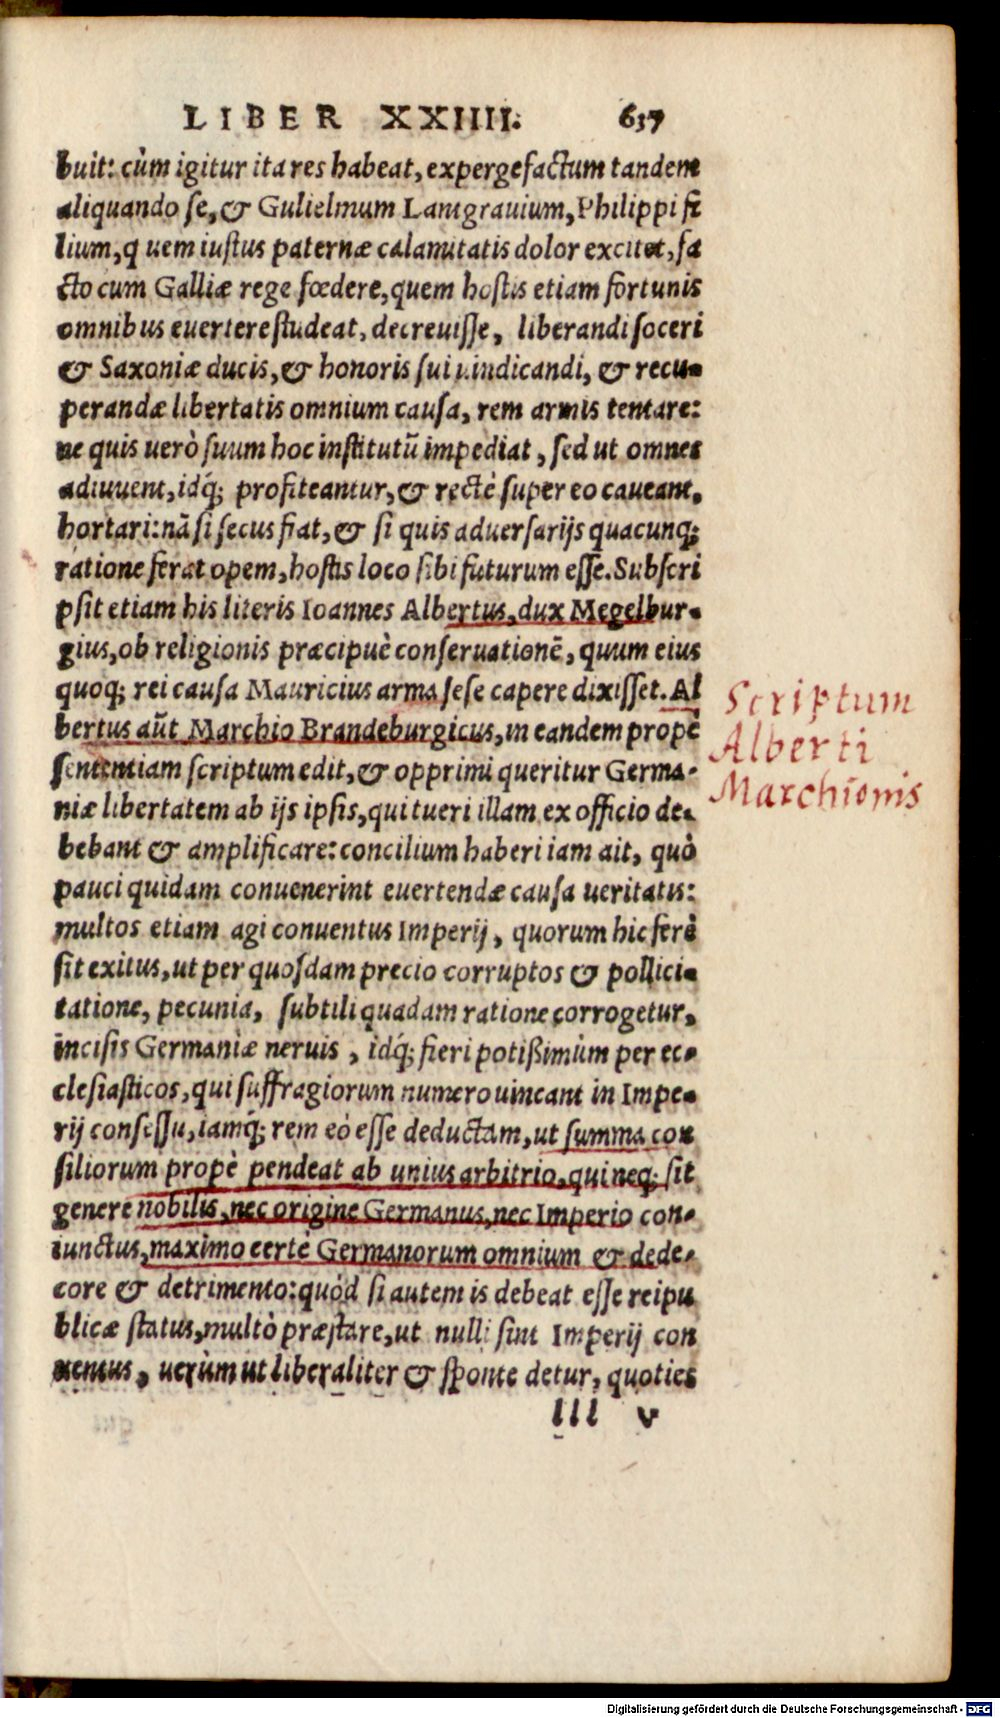 LIBER XXIIII. 637
buit: cùm igitur ita res habeat, expergefactum tandem
aliquando se, & Gulielmum Lantgrauium, Philippi fi
lium, quem iustus paternæ calamitatis dolor excitet, fa
cto cum Galliæ rege fœdere, quem hostis etiam fortunis
omnibus euertere studeat, decreuisse, liberandi soceri
& Saxoniæ ducis, & honoris sui uindicandi, & recu-
perandæ libertatis omnium causa, rem armis tentare:
ne quis uerò suum hoc institutū impediat, sed ut omnes
adiuuent, idq́; profiteantur, & rectè super eo caueant,
hortari: nā si secus fiat, & si quis aduersarijs quacunq;
ratione ferat opem, hostis loco sibi futurum esse. Subscri
psit etiam his literis Ioannes Albertus, dux Megelbur-
gius, ob religionis præcipuè conseruationē, quum eius
quoq; rei causa Mauricius arma sese capere dixisset. Al
bertus aūt Marchio Brandeburgicus, in eandem propè
sententiam scriptum edit, & opprimi queritur Germa-
niæ libertatem ab ijs ipsis, qui tueri illam ex officio de-
bebant & amplificare: concilium haberi iam ait, quò
pauci quidam conuenerint euertendæ causa ueritatis:
multos etiam agi conuentus Imperij, quorum hic ferè
sit exitus, ut per quosdam precio corruptos & pollici-
tatione, pecunia, subtili quadam ratione corrogetur,
incisis Germaniæ neruis, idq́; fieri potißimùm per ec-
clesiasticos, qui suffragiorum numero uincant in Impe-
rij consessu, iamq́; rem eò esse deductam, ut summa con
siliorum propè pendeat ab unius arbitrio, qui neq; sit
genere nobilis, nec origine Germanus, nec Imperio con-
iunctus, maximo certè Germanorum omnium & dede-
core & detrimento: quòd si autem is debeat esse reipu
blicæ status, multò præstare, ut nulli sint Imperij con
uentus, uerùm ut liberaliter & sponte detur, quoties
lll v
Scriptum
Alberti
Marchionis
Digitalisierung gefördert durch die Deutsche Forschungsgemeinschaft - DFG